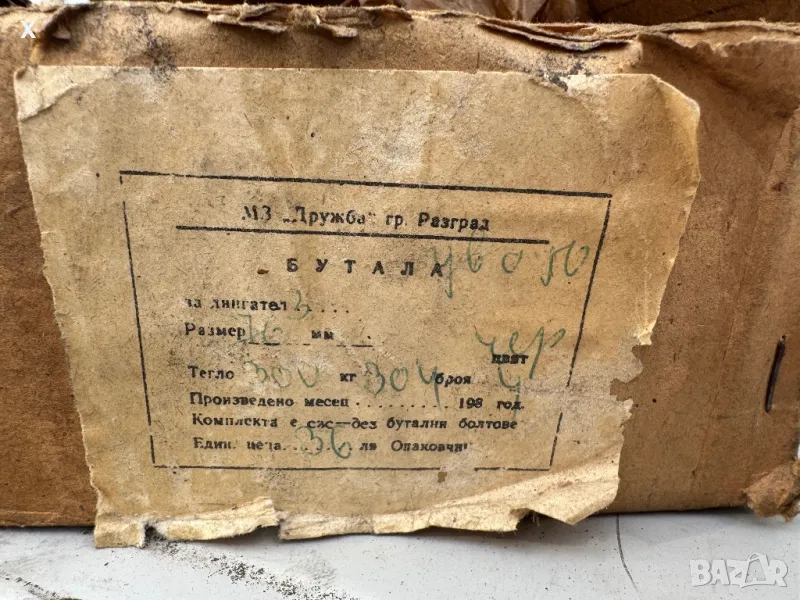 x
МЗ „Дружба“ гр. Разград
БУТАЛА
за двигател 3 . . . .
Размер 76 мм
чер
цвят
Тегло 300 кг 304 броя 4
Произведено месец . . . . . . . . . . 198 год.
Комплекта е със—без бутални болтове
Един. цена . . . 36 лв Опаковчик
BAZAR